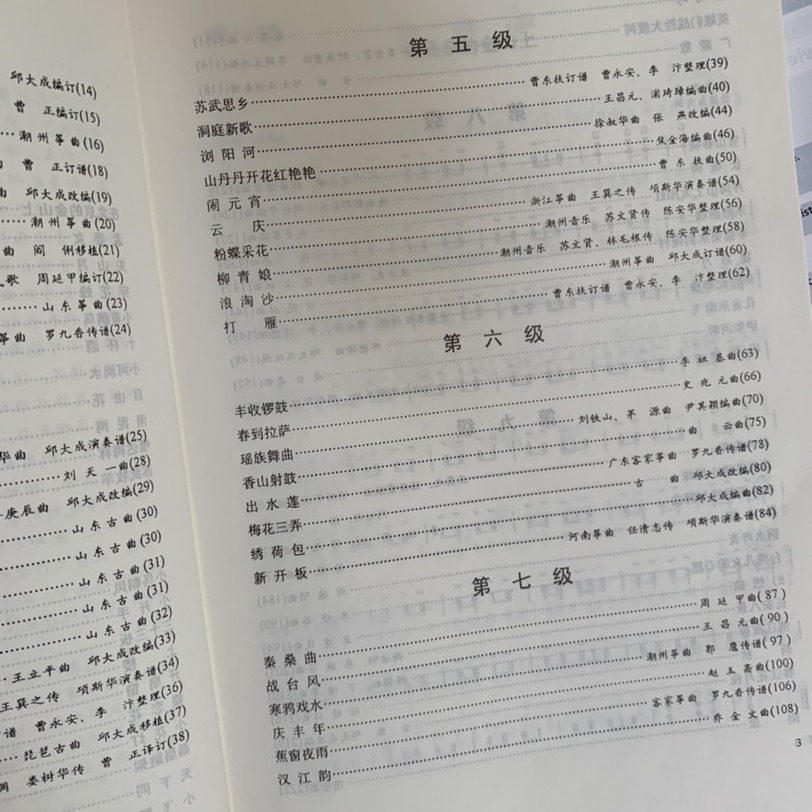 邱大成编订(14)
曹 正编订(15)
潮州筝曲(16)
曹 正订谱(18)
曲 邱大成改编(19)
潮州筝曲(20)
曲 阎 俐移植(21)
歌 周延甲编订(22)
山东筝曲(23)
筝曲 罗九香传谱(24)
华曲 邱大成演奏谱(25)
刘天一曲(28)
庚辰曲 邱大成改编(29)
山东古曲(30)
山东古曲(30)
山东古曲(31)
山东古曲(31)
山东古曲(32)
王立平曲 邱大成改编(33)
王巽之传 项斯华演奏谱(34)
曹永安、李 汴整理(36)
琵琶古曲 邱大成移植(37)
娄树华传 曹 正译订(38)
第五级
苏武思乡 曹东扶订谱 曹永安、李 汴整理(39)
洞庭新歌 王昌元、浦琦璋编曲(40)
浏阳河 徐叔华曲 张 燕改编(44)
山丹丹开花红艳艳 焦金海编曲(46)
闹元宵 曹东扶曲(50)
云 庆 浙江筝曲 王巽之传 项斯华演奏谱(54)
粉蝶采花 潮州音乐 苏文贤传 陈安华整理(56)
柳青娘 潮州音乐 苏文贤、林毛根传 陈安华整理(58)
浪淘沙 潮州筝曲 邱大成订谱(60)
打 雁 曹东扶订谱 曹永安、李 汴整理(62)
第六级
丰收锣鼓 李祖基曲(63)
春到拉萨 史兆元曲(66)
瑶族舞曲 刘铁山、茅 源曲 尹其颖编曲(70)
香山射鼓 曲 云曲(75)
出水莲 广东客家筝曲 罗九香传谱(78)
梅花三弄 古 曲 邱大成改编(80)
绣荷包 邱大成编曲(82)
新开板 河南筝曲 任清志传 项斯华演奏谱(84)
第七级
秦桑曲 周延甲曲(87)
战台风 王昌元曲(90)
寒鸦戏水 潮州筝曲 郭 鹰传谱(97)
庆丰年 赵玉斋曲(100)
蕉窗夜雨 客家筝曲 罗九香传谱(106)
汉江韵 乔金文曲(108)
3